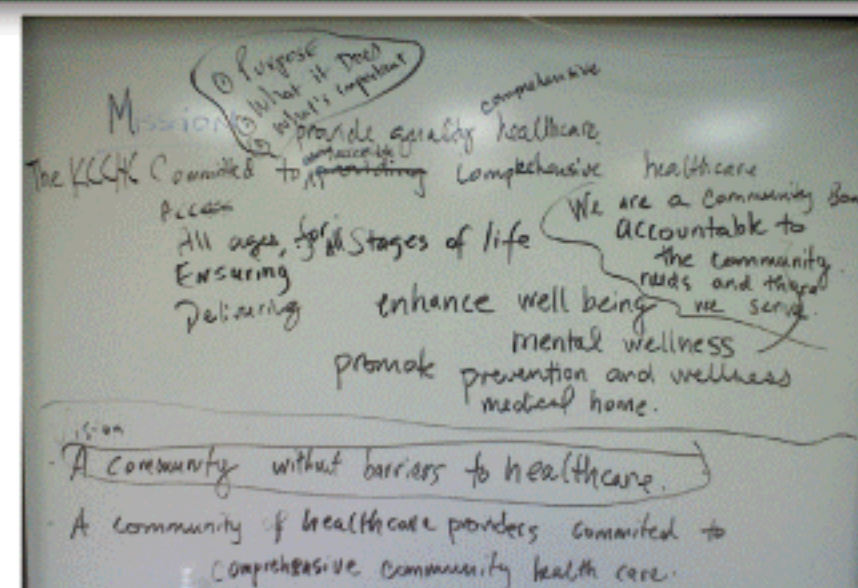 ① Purpose
② What it Does
③ What's important
Mission
comprehensive
provide quality healthcare
The KCCHC Committed to providing comprehensive healthcare
Access
All ages, for all stages of life
Ensuring
Delivering
We are a community
accountable to
the community
needs and those
we serve.
enhance well being
mental wellness
promote prevention and wellness
medical home.
ision
· A community without barriers to healthcare.
· A community of healthcare providers commited to
comprehensive community health care.